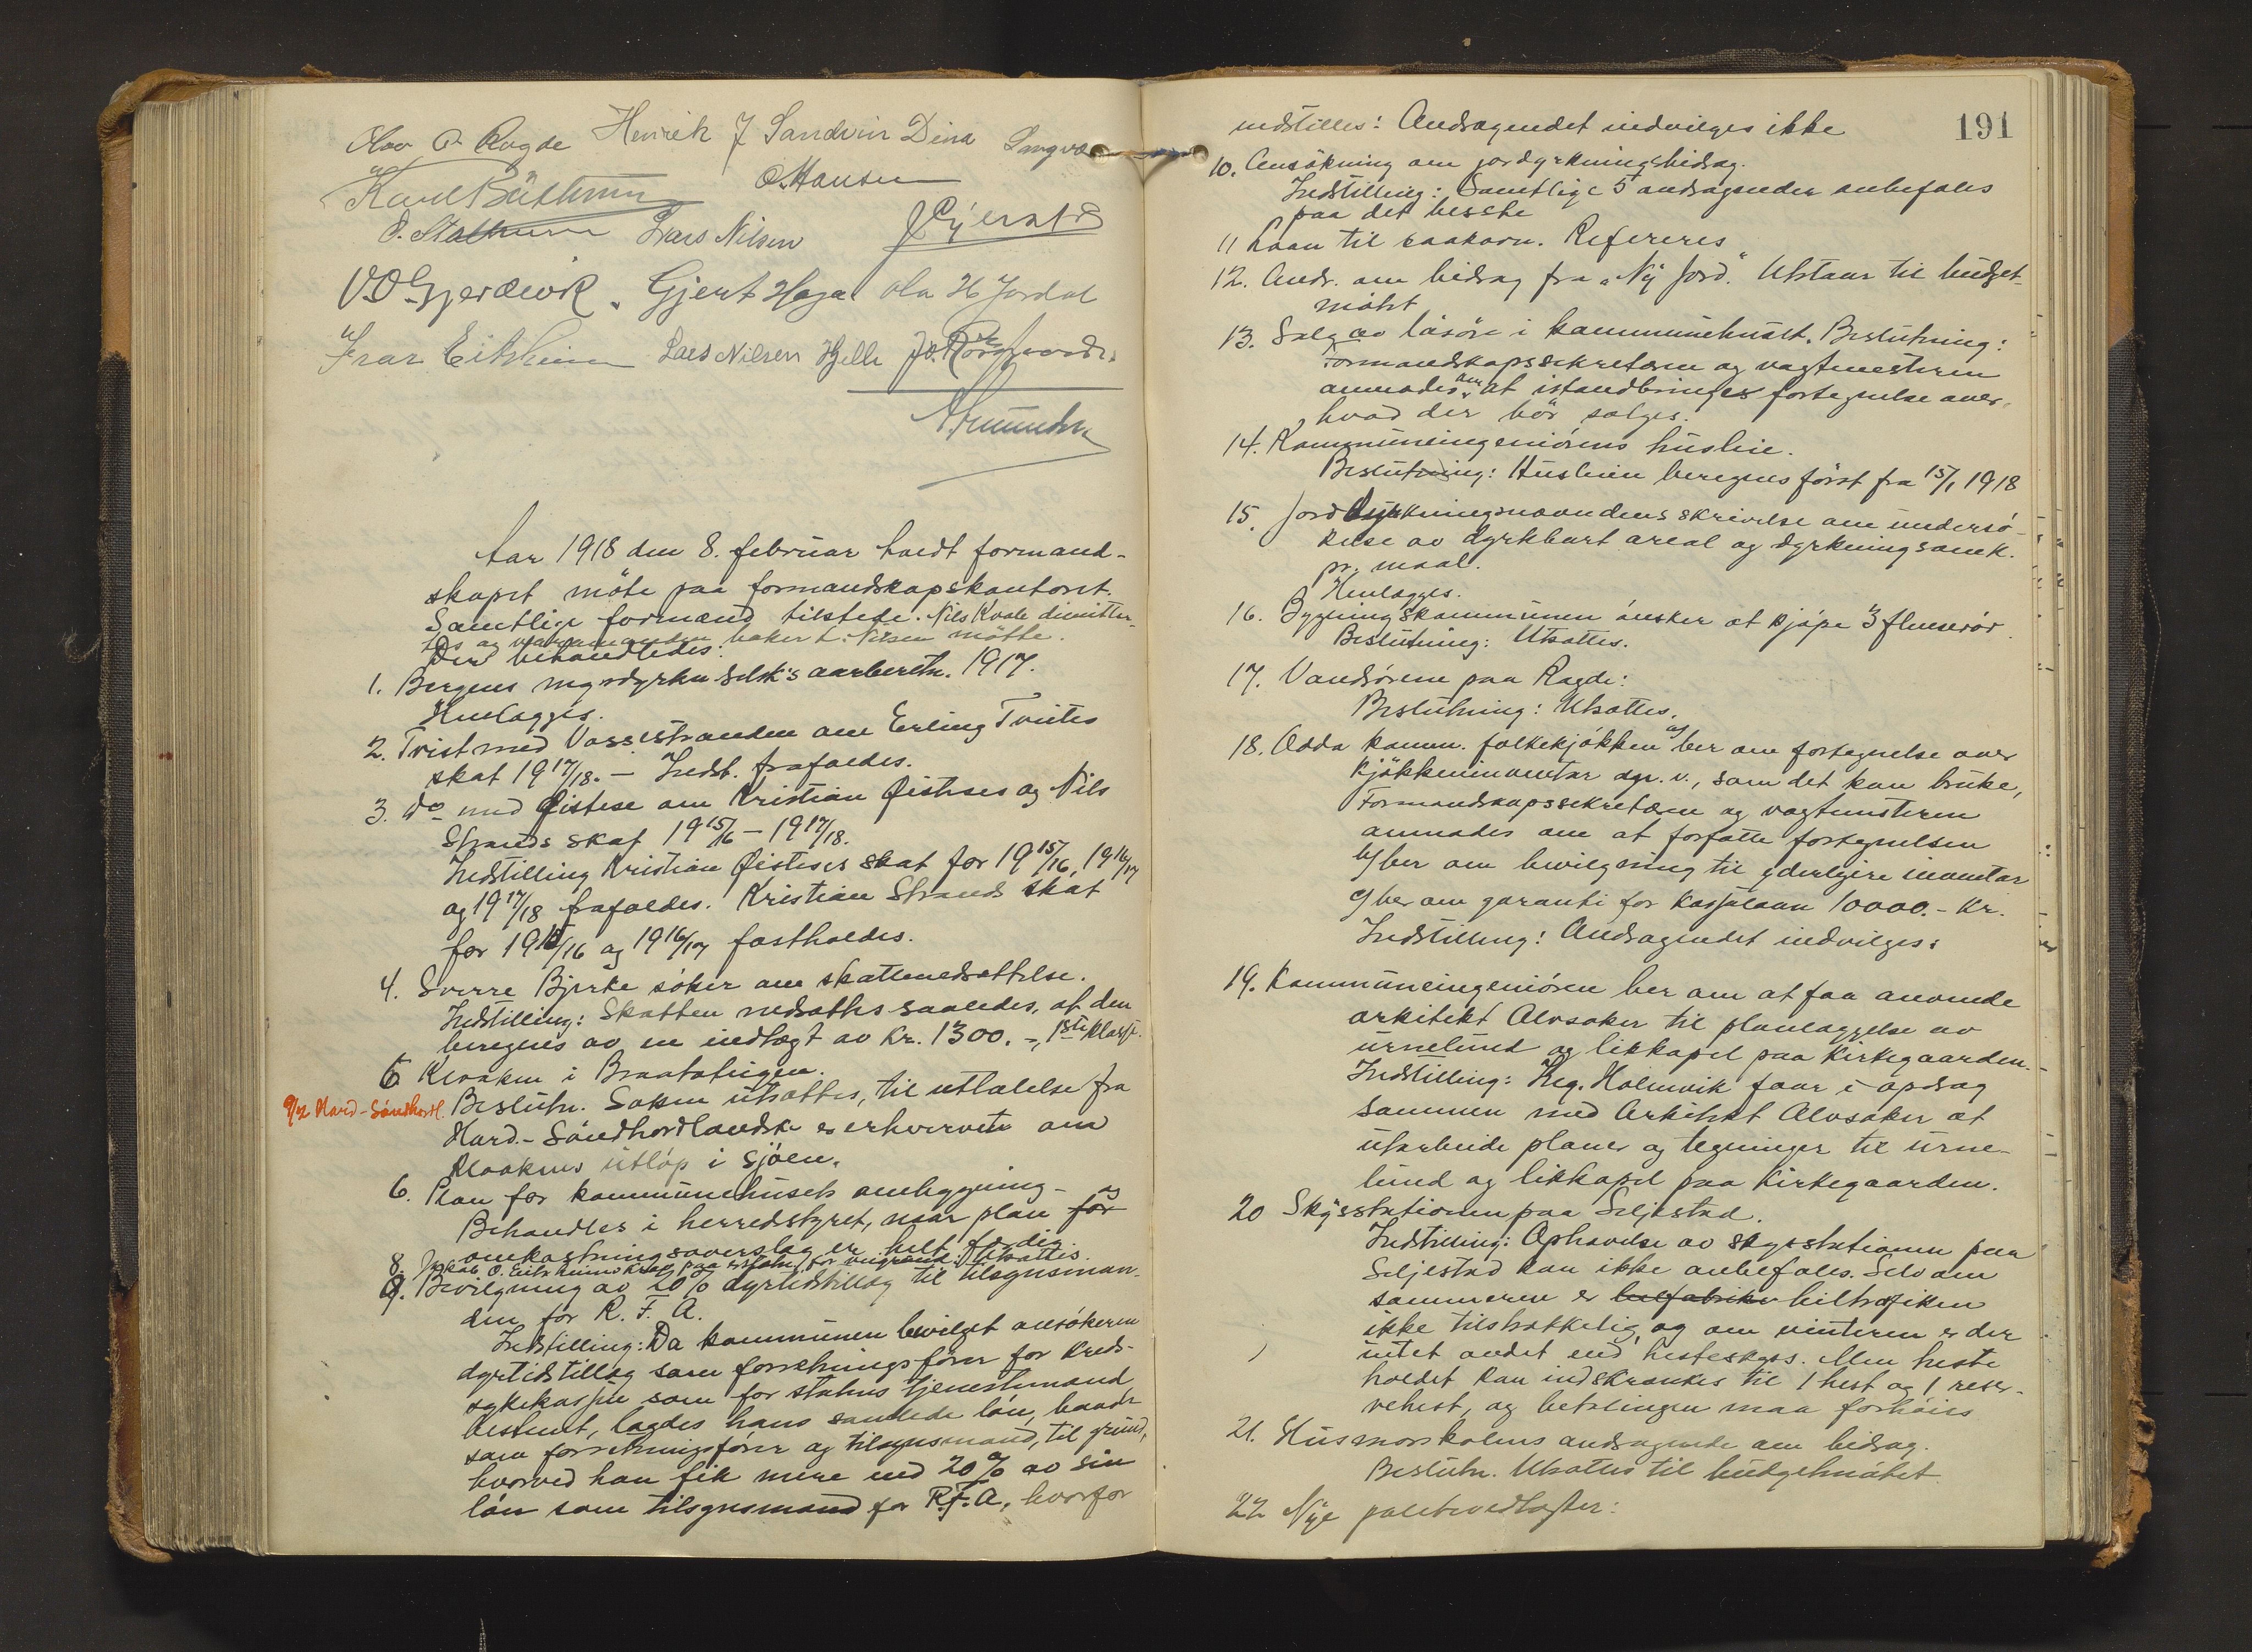 Olav A. Ragde Henrik J Sandvin Dina Langva
Karl Büthun O. Hansen
O. Stalheim Lars Nilsen
V. O. Gjerdevik. Gjert Haga Ola H Jordal
Ivar Eitrheim Lars Nilsen Hjelle
Aar 1918 den 8. februar holdt formand-
skapet möte paa formandskapskontoret.
Samtlige formænd tilstede. Nils Kvale dimitter-
tes og varamanden baker L. Nilsen mötte.
Der behandledes:
1. Bergens myrdyrkn selsk's aarberetn. 1917.
Henlægges.
2. Tvist med Vossestranden om Erling Tvites
skat 1917/18. – Indst. frafaldes.
3. do med Øistese om Kristian Øisteses og Nils
Strands skat 1915/16 – 1917/18.
Indstilling Kristian Øisteses skat for 1915/16, 1916/17
og 1917/18 frafaldes. Kristian Strands skat
for 1915/16 og 1916/17 fastholdes.
4. Sverre Bjerke söker om skattenedsættelse.
Indstilling: Skatten nedsættes saaledes, at den
beregnes av en indtægt av Kr. 1300.-, 1ste klasse.
5. Kloaken i Braatatingen.
9/2 Hard-Söndhordl. Beslutn. Saken utsættes, til uttalelse fra
Hard.-Söndhordlandske er erhvervet om
kloakens utlöp i sjöen.
6. Plan for kommunehusets ombygning –
Behandles i herredstyret, naar plan for og
omkostningsoverslag er helt færdig.
8. Jakob O. Eitrheims krav paa erstatn. for veigrund. Utsættes.
9. Bevilgning av 20% dyrtidstillæg til tilsynsman-
den for R. F. A.
Indstilling: Da kommunen bevilget ansökeren
dyrtidstillæg som forretningsförer for kreds-
sykekassen som for statens tjenestemænd
bestemt, lagdes hans samlede lön, baade
som forretningsförer og tilsynsmand, til grund,
hvorved han fik mere end 20% av sin
lön som tilsynsmand for R.F.A, hvorfor
191
indstilles: Andragendet indvilges ikke
10. Ansökning om jordyrkningsbidrag.
Indstilling: Samtlige 5 andragender anbefales
paa det beste
11 Laan til saakorn. Refereres
12. Andr. om bidrag fra "Ny Jord." Utstaar til budget-
mötet
13. Salg av lösöre i kommunehuset. Beslutning:
Formandskapssekretæren og vagtmesteren
anmodes om at istandbringes fortegnelse over,
hvad der bör sælges.
14. Kommuneingeniörens husleie.
Beslutning: Husleien beregnes först fra 15/1 1918
15. Jorddyrkningsnævndens skrivelse om undersö-
kelse av dyrkbart areal og dyrkningsomk.
pr. maal.
Henlægges.
16. Bygningskommunen önsker at kjöpe 3 flenserör.
Beslutning: Utsættes.
17. Vandsörene paa Ragde:
Beslutning: Utsættes.
18. Odda komm. folkekjökken a/ ber om fortegnelse over
kjökkeninventar ogs. v., som det kan bruke,
Formandskapssekretæren og vagtmesteren
anmodes om at forfatte fortegnelsen
b/ ber om bevilgning til yderligere inventar
c/ ber om garanti for kassalaan 10000.- Kr.
Indstilling: Andragendet indvilges.
19. Kommuneingeniören ber om at faa anvende
arkitekt Alvsaker til planlæggelse av
urnelund og likkapel paa kirkegaarden. –
Indstilling: Ing. Holmvik faar i opdrag
sammen med Arkitekt Alvsaker at
utarbeide planer og tegninger til urne-
lund og likkapel paa kirkegaarden.
20 Skysstationen paa Seljestad.
Indstilling: Ophævelse av skysstationen paa
Seljestad kan ikke anbefales. Selv om
sommeren er biltrafiken
ikke tilstrækkelig, og om vinteren er der
intet andet end hesteskyss. Men heste
holdet kan indskrænkes til 1 hest og 1 reser-
vehest, og betalingen maa forhöies
21. Husmorskolens andragende om bidrag.
Beslutn. Utsættes til budgetmötet
22 Nye valutavedtægter: